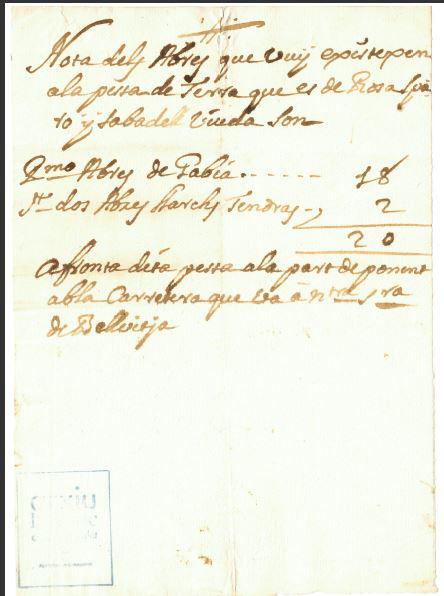 Nota dels Abres que vuy epistepen
ala pesa de Terra que es de Rosa Spa
ro y sabadell Viuda son
Pmo Abres de Pabia . . - - - - - 18
Jt dos Abres tendras 2
20
Afronta dita pessa ala part de ponent
ab la Carretera que va â ntra sra
de Bellvitja
arxiu